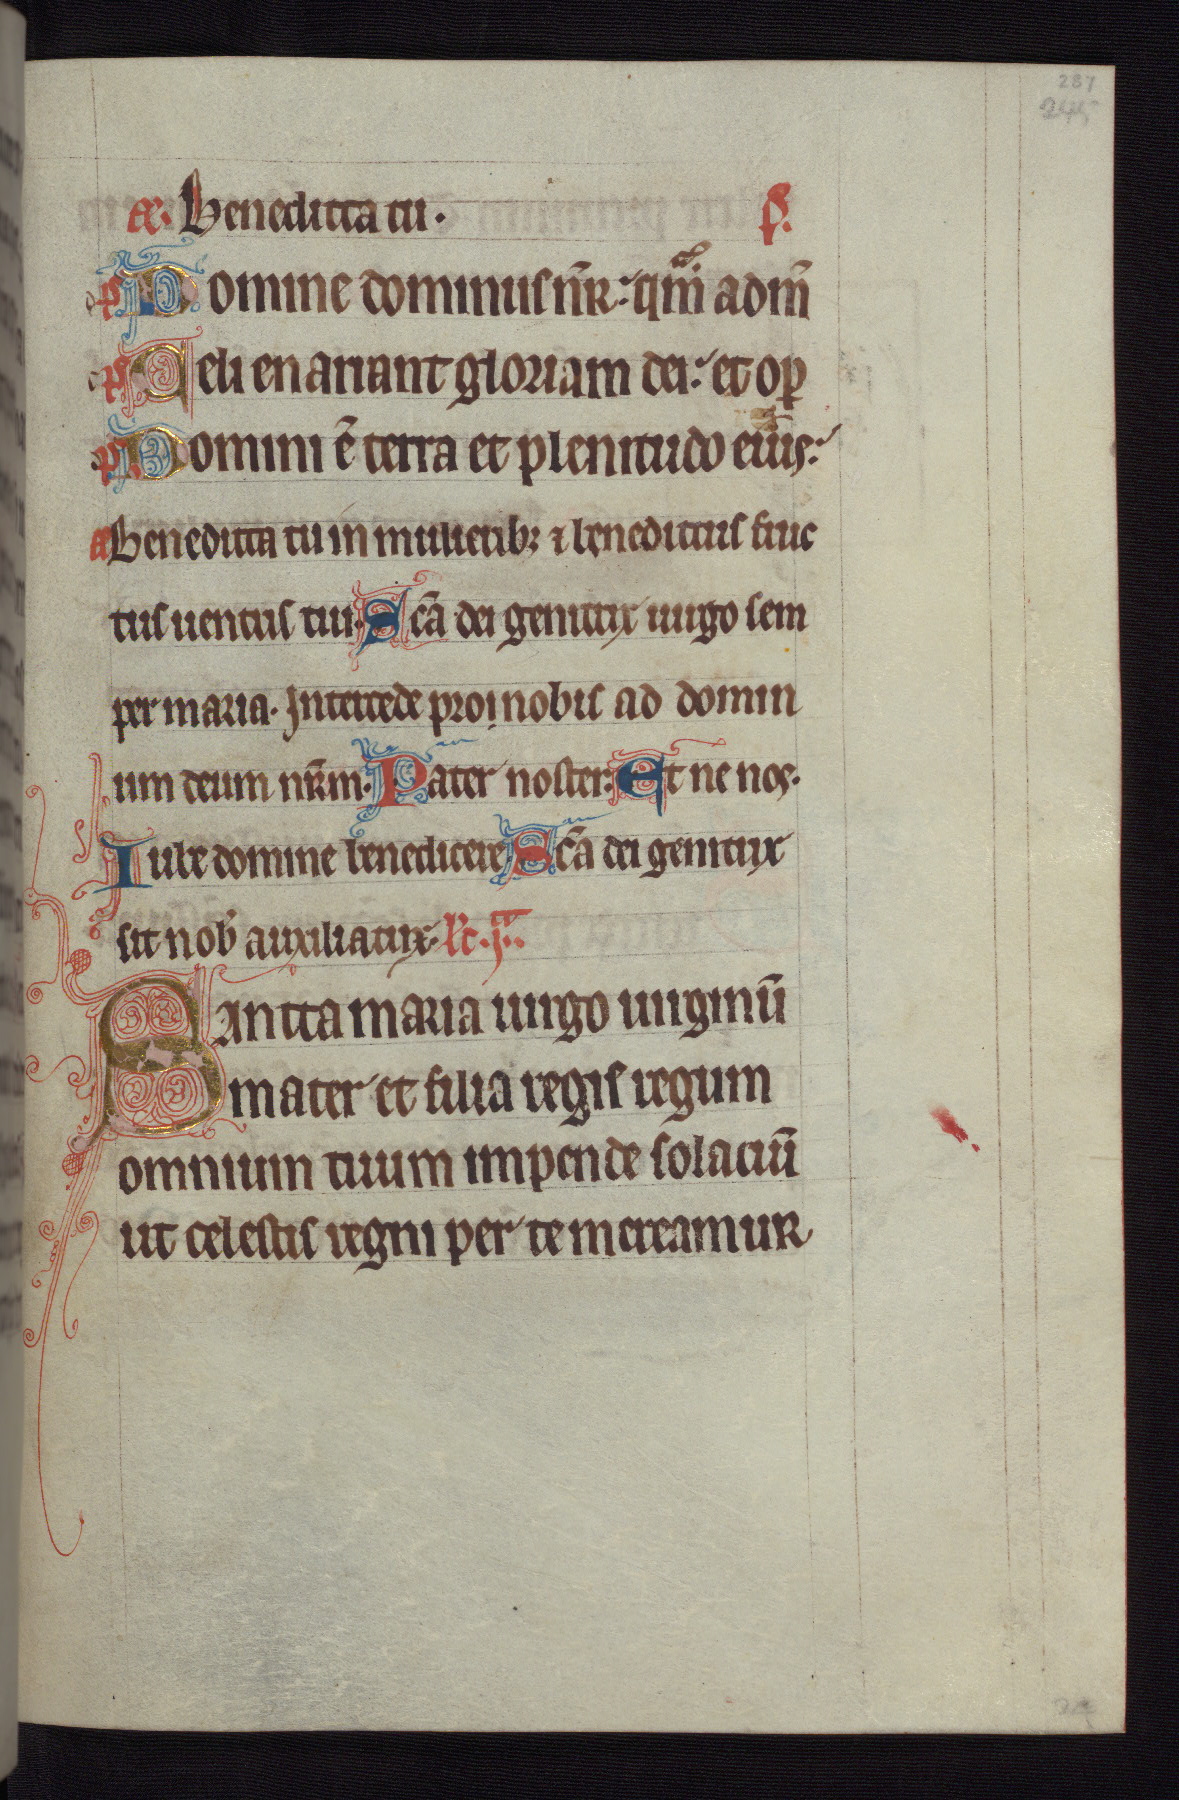 287
245
æ. Benedicta tu. p̄.
p̄ Domine dominus nr̄: qm̄ adm̄
p̄ Celi enariant gloriam dei: et op̄
p̄. Domini ē terra et plenitudo eius:
a Benedicta tu in mulieribꝫ ⁊ benedictus fruc
tus uentus tui. Scā dei genitrix uirgo sem
per maria. Intercede pro nobis ad domin
um deum nr̄m. Pater noster. Et ne nos.
Iube domine benedicere. Scā dei genitrix
sit nob̄ auxiliatrix. lc̄. j.
Sancta maria uirgo uirginū
mater et filia regis regum
omnium tuum impende solaciū
ut celestis regni per te mereamur